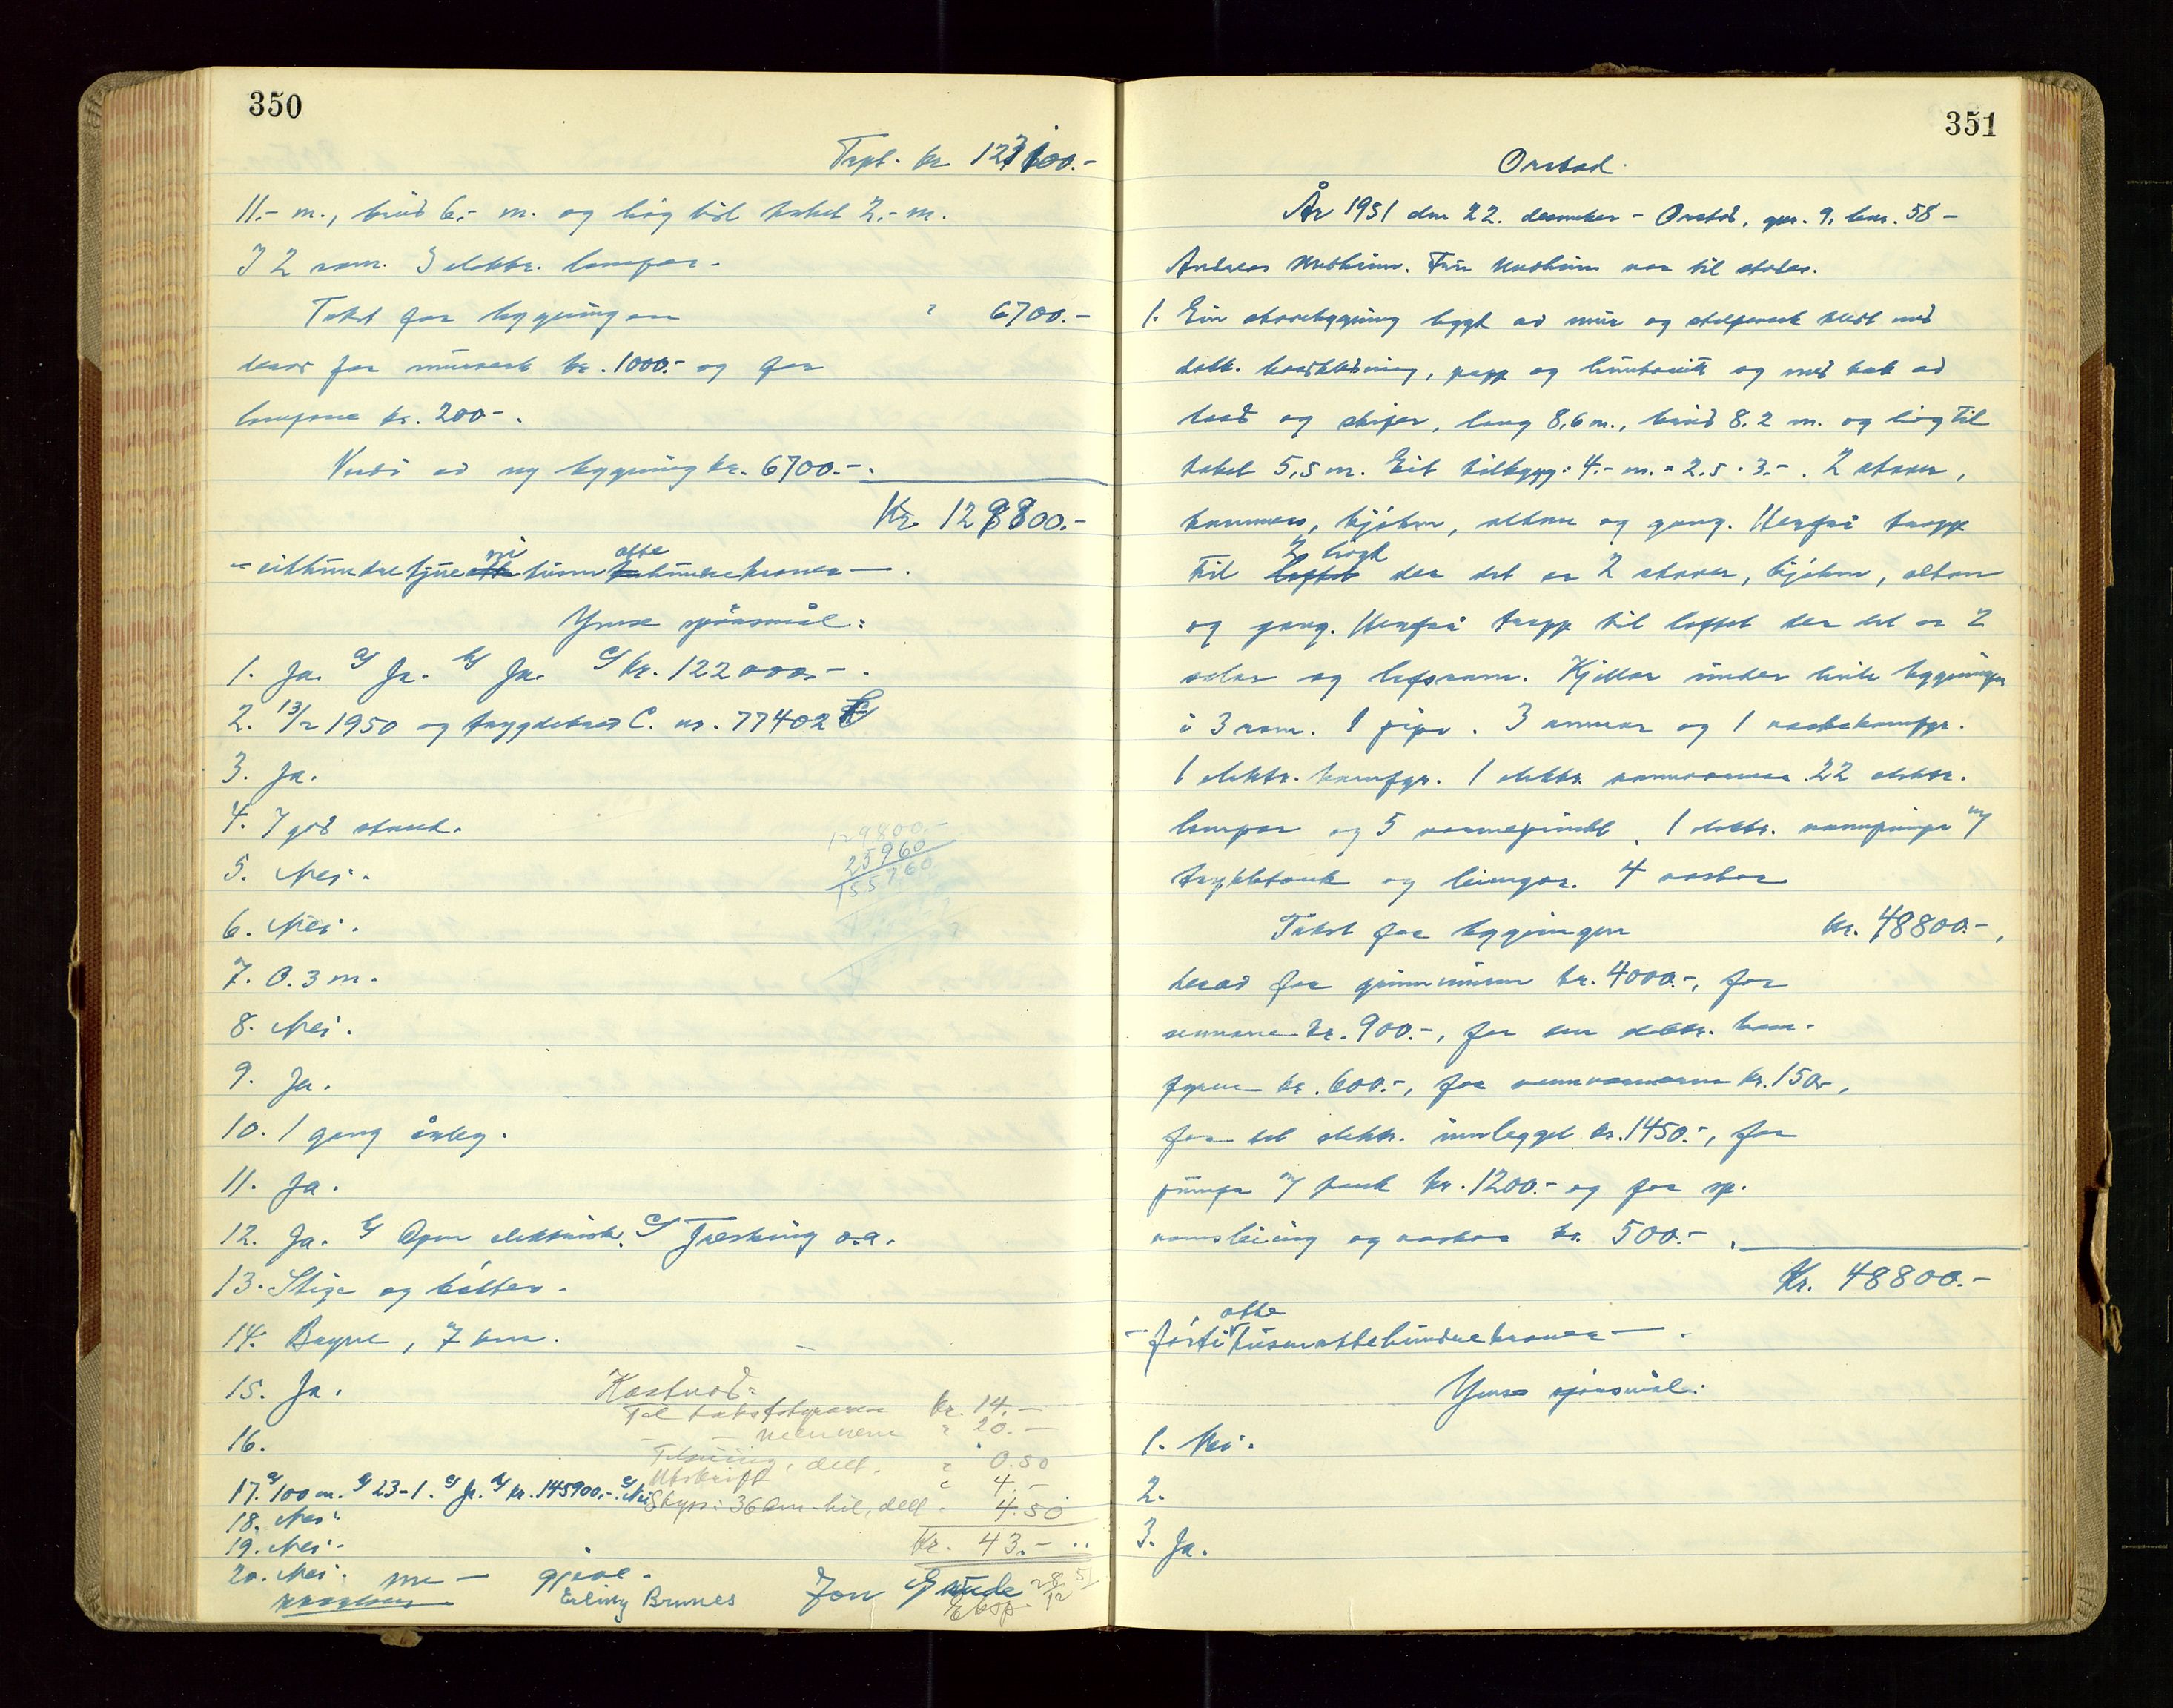 350
Trpt. kr 123100.-
11.- m., breid 6.- m. og høg til taket 2.- m.
I 2 rom. 3 elektr. lampor.
Takst for bygningen " 6700.-
derav for murverk kr. 1000.- og for
lampone kr. 200.-.
Verdi av ny bygning kr. 6700.-.
Kr. 129800.-
- eitthundretjueni tusen åttehundrekroner -.
Ymse spørsmål:
1. Ja. a/ Ja. b/ Ja. c/ kr. 122000.-.
2. 13/2 1950 og trygdebrev C. nr. 77402
3. Ja.
4. I god stand.
129800.-
25960
155760
5. Nei.
6. Nei.
7. 0.3 m.
8. Nei.
9. Ja.
10. 1 gong årleg.
11. Ja.
12. Ja. b/ Open elektrisk. c/ Tresking o.a.
13. Stige og bøtter.
14. Bryne, 7 km.
15. Ja.
Kostnad:
Til takststyraren kr. 14.-
- - mennene " 20.-
16.
Tilsening, delt. " 0.50
Utskrift " 4.-
17. a/ 100 m. b/ 23-1. c/ Ja. d/ kr. 145900.-. e/ Nei
Skyss: 36 km bil, delt. 4.50
18. Nei.
19. Nei.
Kr. 43.-
20. Nei.
Erling Brunes
Jon Grude
Eksp. 28/12 51
351
Orstad.
År 1951 den 22. desember - Orstad, gnr. 9, bnr. 58 -
Andreas Undheim. Fru Undheim var til stades.
1. Ein storebygning bygt av mur og stolpeverk kledt med
dobb. bordkledning, papp og og med tak av
bord og skifer, lang 8,6 m., breid 8.2 m. og høg til
taket 5,5 m. Eit tilbygg: 4.- m. × 2.5 × 3.-. 2 stover,
kammers, kjøken, altan og gang. Herfrå trapp
til 2 høgd der det er 2 stover, kjøken, altan
og gang. Herfrå trapp til loftet der det er 2
salar og loftsrom. Kjellar under heile bygningen
i 3 rom. 1 pipe. 3 omnar og 1 vaskekomfyr.
1 elektr. komfyr. 1 elektr. vannvarmar 22 elektr.
lampor og 5 varmepunkt. 1 elektr. vannpumpe m/
trykktank og leiingar. 4 vaskar
Takst for bygningen kr. 48800.-,
derav for grunnmuren kr. 4000.-, for
omnane kr. 900.-, for den elektr. kom-
fyren kr. 600.-, for vannvarmaren kr. 150.-,
for det elektr. innlegget kr. 1450.-, for
pumpa m/ tank kr. 1200.- og for sp.
vannleiing og vaskar kr. 500.-.
Kr. 48800.-
- førtiåttetusenåttehundrekroner -.
Ymse spørsmål:
1. Nei.
2.
3. Ja.